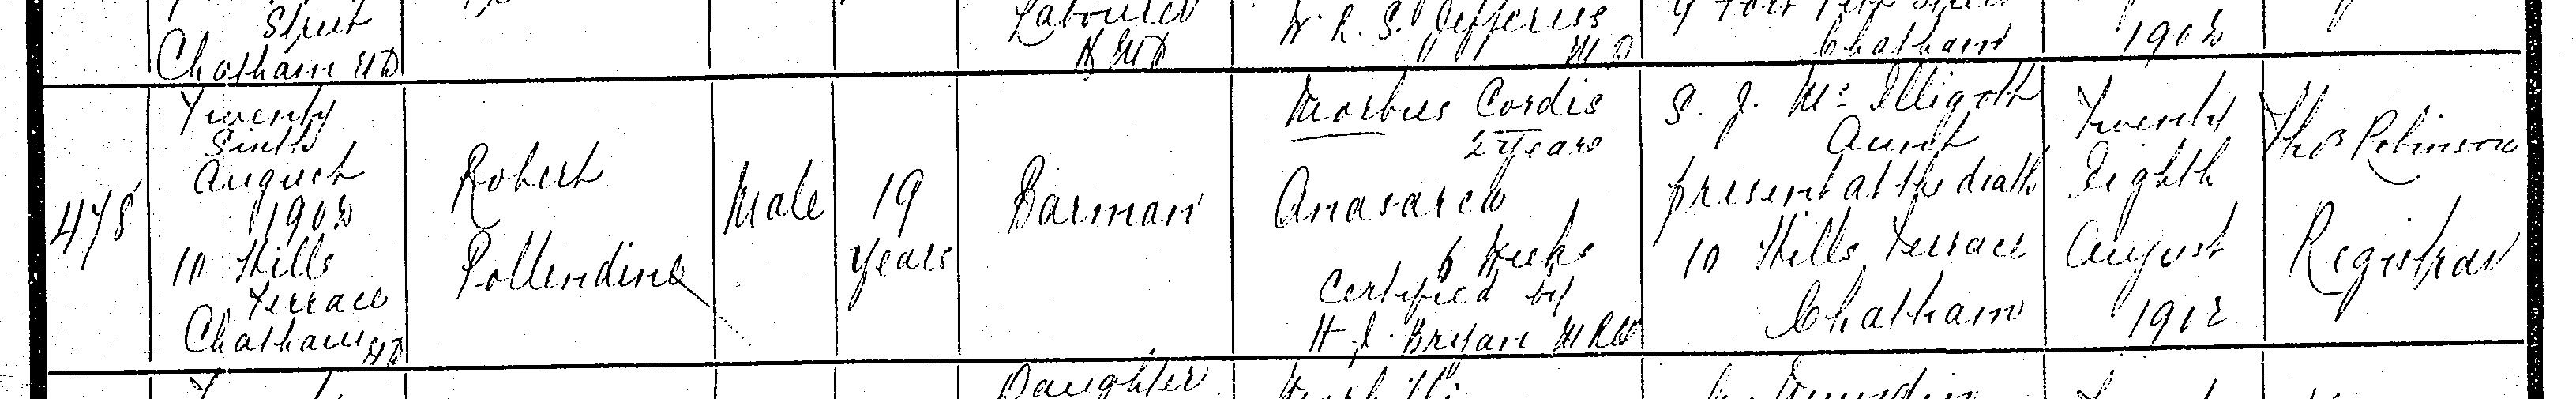 Street
Chatham UD
Labourer
H M D
W. R. S. Jefferies
M D
Chatham
1902
478
Twenty
Sixth
August
1902
10 Hills
Terrace
Chatham UD
Robert
Pollendine
Male
19
years
Barman
Morbus Cordis
2 years
Anasarca
6 Weeks
Certified by
H. J. Bryan MRCS
S. J. Mc Elligott
Aunt
present at the death
10 Hills Terrace
Chatham
Twenty
Eighth
August
1902
Thos Robinson
Registrar
Daughter